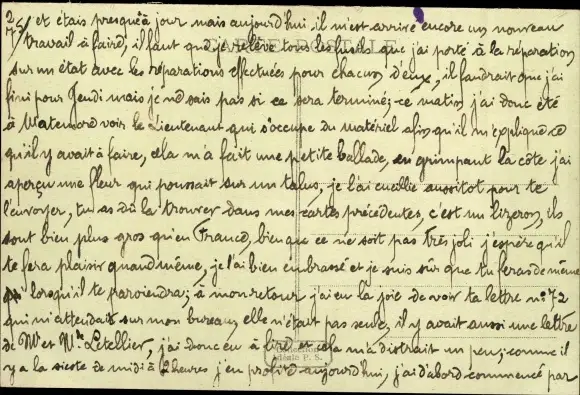 2/5 et étais presque à jour mais aujourd'hui il m'est arrivé encore un nouveau
travail à faire, il faut que je relève tous les fusils que j'ai porté à la réparation
sur un état avec les réparations effectuées pour chacun d'eux, il faudrait que j'ai
fini pour Jeudi mais je ne sais pas si ce sera terminé; ce matin j'ai donc été
à voir le Lieutenant qui s'occupe du matériel afin qu'il m'explique ce
qu'il y avait à faire, cela m'a fait une petite ballade, en grimpant la côte j'ai
aperçu une fleur qui poussait sur un talus, je l'ai cueillie aussitot pour te
l'envoyer, tu as dû la trouver dans mes cartes précédentes, c'est un lizeron, ils
sont bien plus gros qu'en France, bien que ce ne soit pas très joli j'espère qu'il
te fera plaisir quand même, je l'ai bien embrassé et je suis sûr que tu feras de même
lorsqu'il te parviendra; à mon retour j'ai eu la joie de voir ta lettre n° 72
qui m'attendait sur mon bureau, elle n'était pas seule, il y avait aussi une lettre
de Mr et Mme Letellier, j'ai donc eu à lire et cela m'a distrait un peu; comme il
y a la sieste de midi à 2 heures j'en profite aujourd'hui, j'ai d'abord commencé par